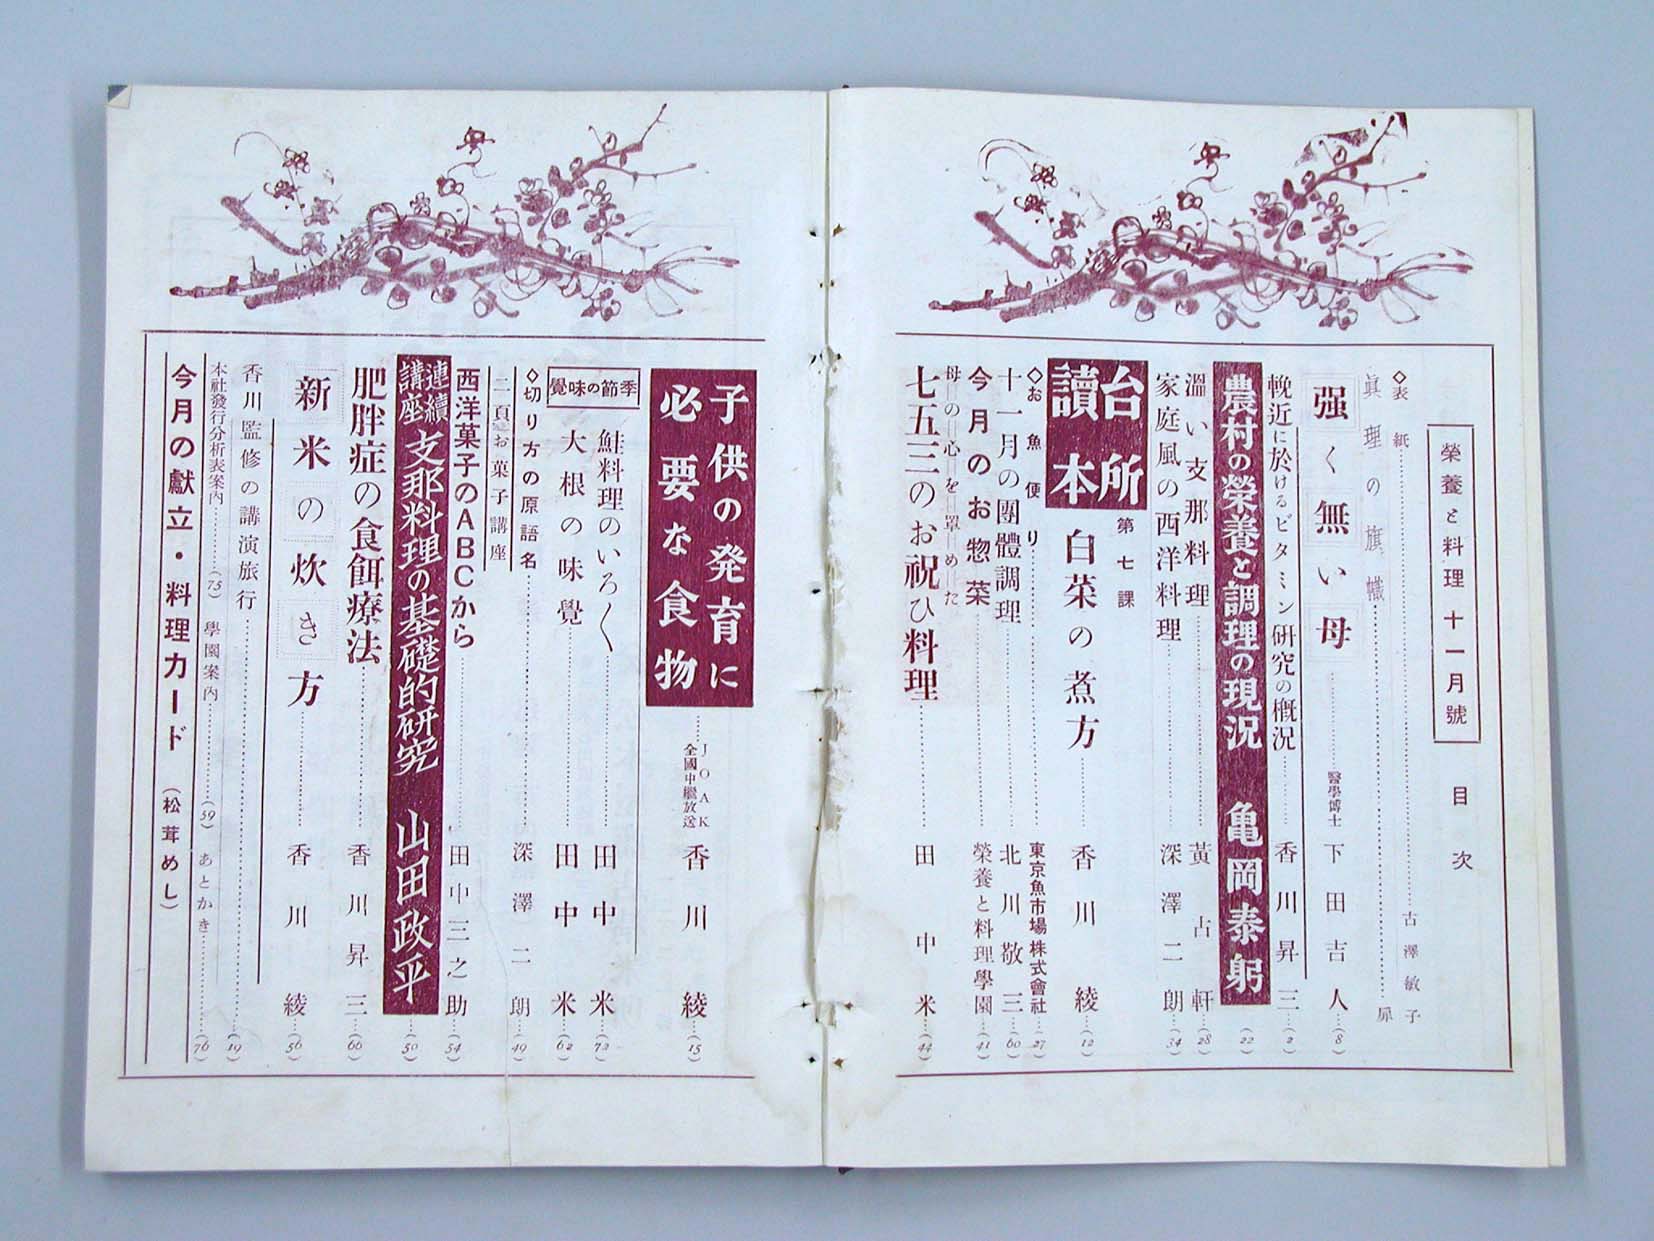 榮養と料理 十一月號
目次
◇表紙……古澤敏子
眞理の旗幟……扉
强く無い母……醫學博士 下田吉人…(8)
輓近に於けるビタミン研究の槪況……香川昇三…(2)
農村の榮養と調理の現況 亀岡泰躬 (22)
溫い支那料理……黃古軒…(28)
家庭風の西洋料理……深澤二朗…(34)
台所讀本 第七課
白菜の煮方……香川綾…(12)
◇お魚便り……東京魚市場株式會社…(27)
十一月の團體調理……北川敬三…(60)
今月のお惣菜……榮養と料理學園…(41)
母の心を罩めた
七五三のお祝ひ料理……田中米…(44)
子供の発育に
必要な食物……JOAK 全國中繼放送 香川綾…(15)
季節の味覺
鮭料理のいろ〱……田中米…(72)
大根の味覺……田中米…(62)
◇切り方の原語名……深澤二朗…(49)
二頁お菓子講座
西洋菓子のABCから……田中三之助…(54)
連續講座 支那料理の基礎的研究 山田政平…(50)
肥胖症の食餌療法……香川昇三…(66)
新米の炊き方……香川綾…(56)
香川監修の講演旅行……(19)
本社發行分析表案內……(75) 學園案內……(59) あとがき……(76)
今月の獻立・料理カード (松茸めし)